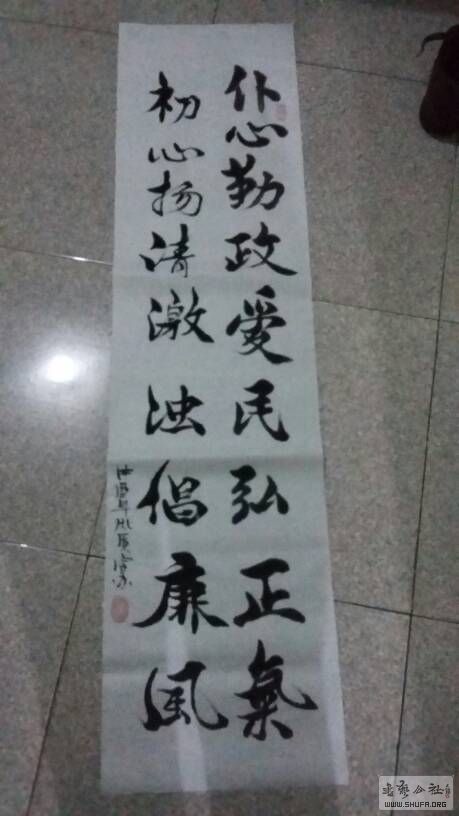 仆心勤政爱民弘正氣
初心扬清激浊倡廉风
书艺公社
WWW.SHUFA.ORG